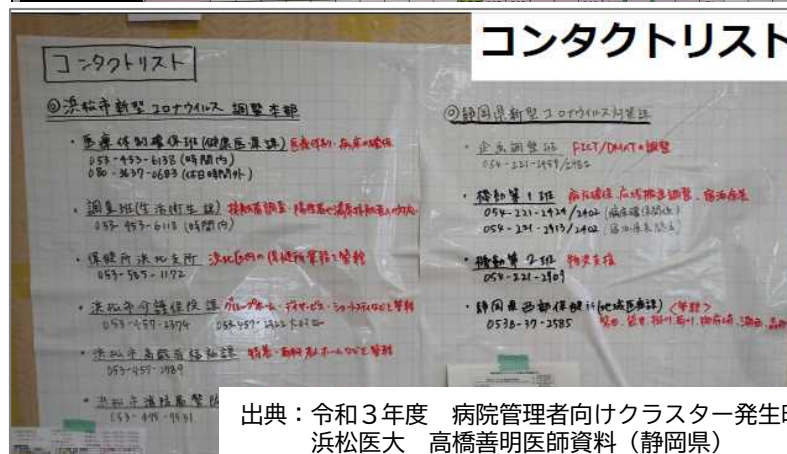 コンタクトリスト
コンタクトリスト
◎浜松市新型コロナウイルス 調整本部
・医療体制確保班(健康医療課) 医療体制・病床の確保
053-453-6138 (時間内)
080-3637-0683 (休日時間外)
・調査班(生活衛生課) 接触者調査・陽性者や濃厚接触者への対応
053-453-6118 (時間内)
・保健所浜北支所 浜北区内の保健所業務を管轄
053-585-1172
・浜松市介護保険課 グループホーム・デイサービス・ショートステイなど管轄
053-457-2374
・浜松市高齢者福祉課 特養・有料老人ホームなど管轄
053-457-2789
・浜松市消防局警防
◎静岡県新型コロナウイルス対策課
・企画調整班 FICT/DMATの調整
・機動第1班 病床確保・広域搬送調整・宿泊療養
054-221-2424/2402 (病床確保関係)
054-221-2413/2402 (宿泊療養関係)
・機動第2班 物資支援
054-221-2409
・静岡県西部保健所(地域医療課) <管轄>
0538-37-2585
磐田・袋井・掛川・菊川・御前崎・湖西・森町
出典：令和３年度　病院管理者向けクラスター発生
浜松医大　高橋善明医師資料（静岡県）